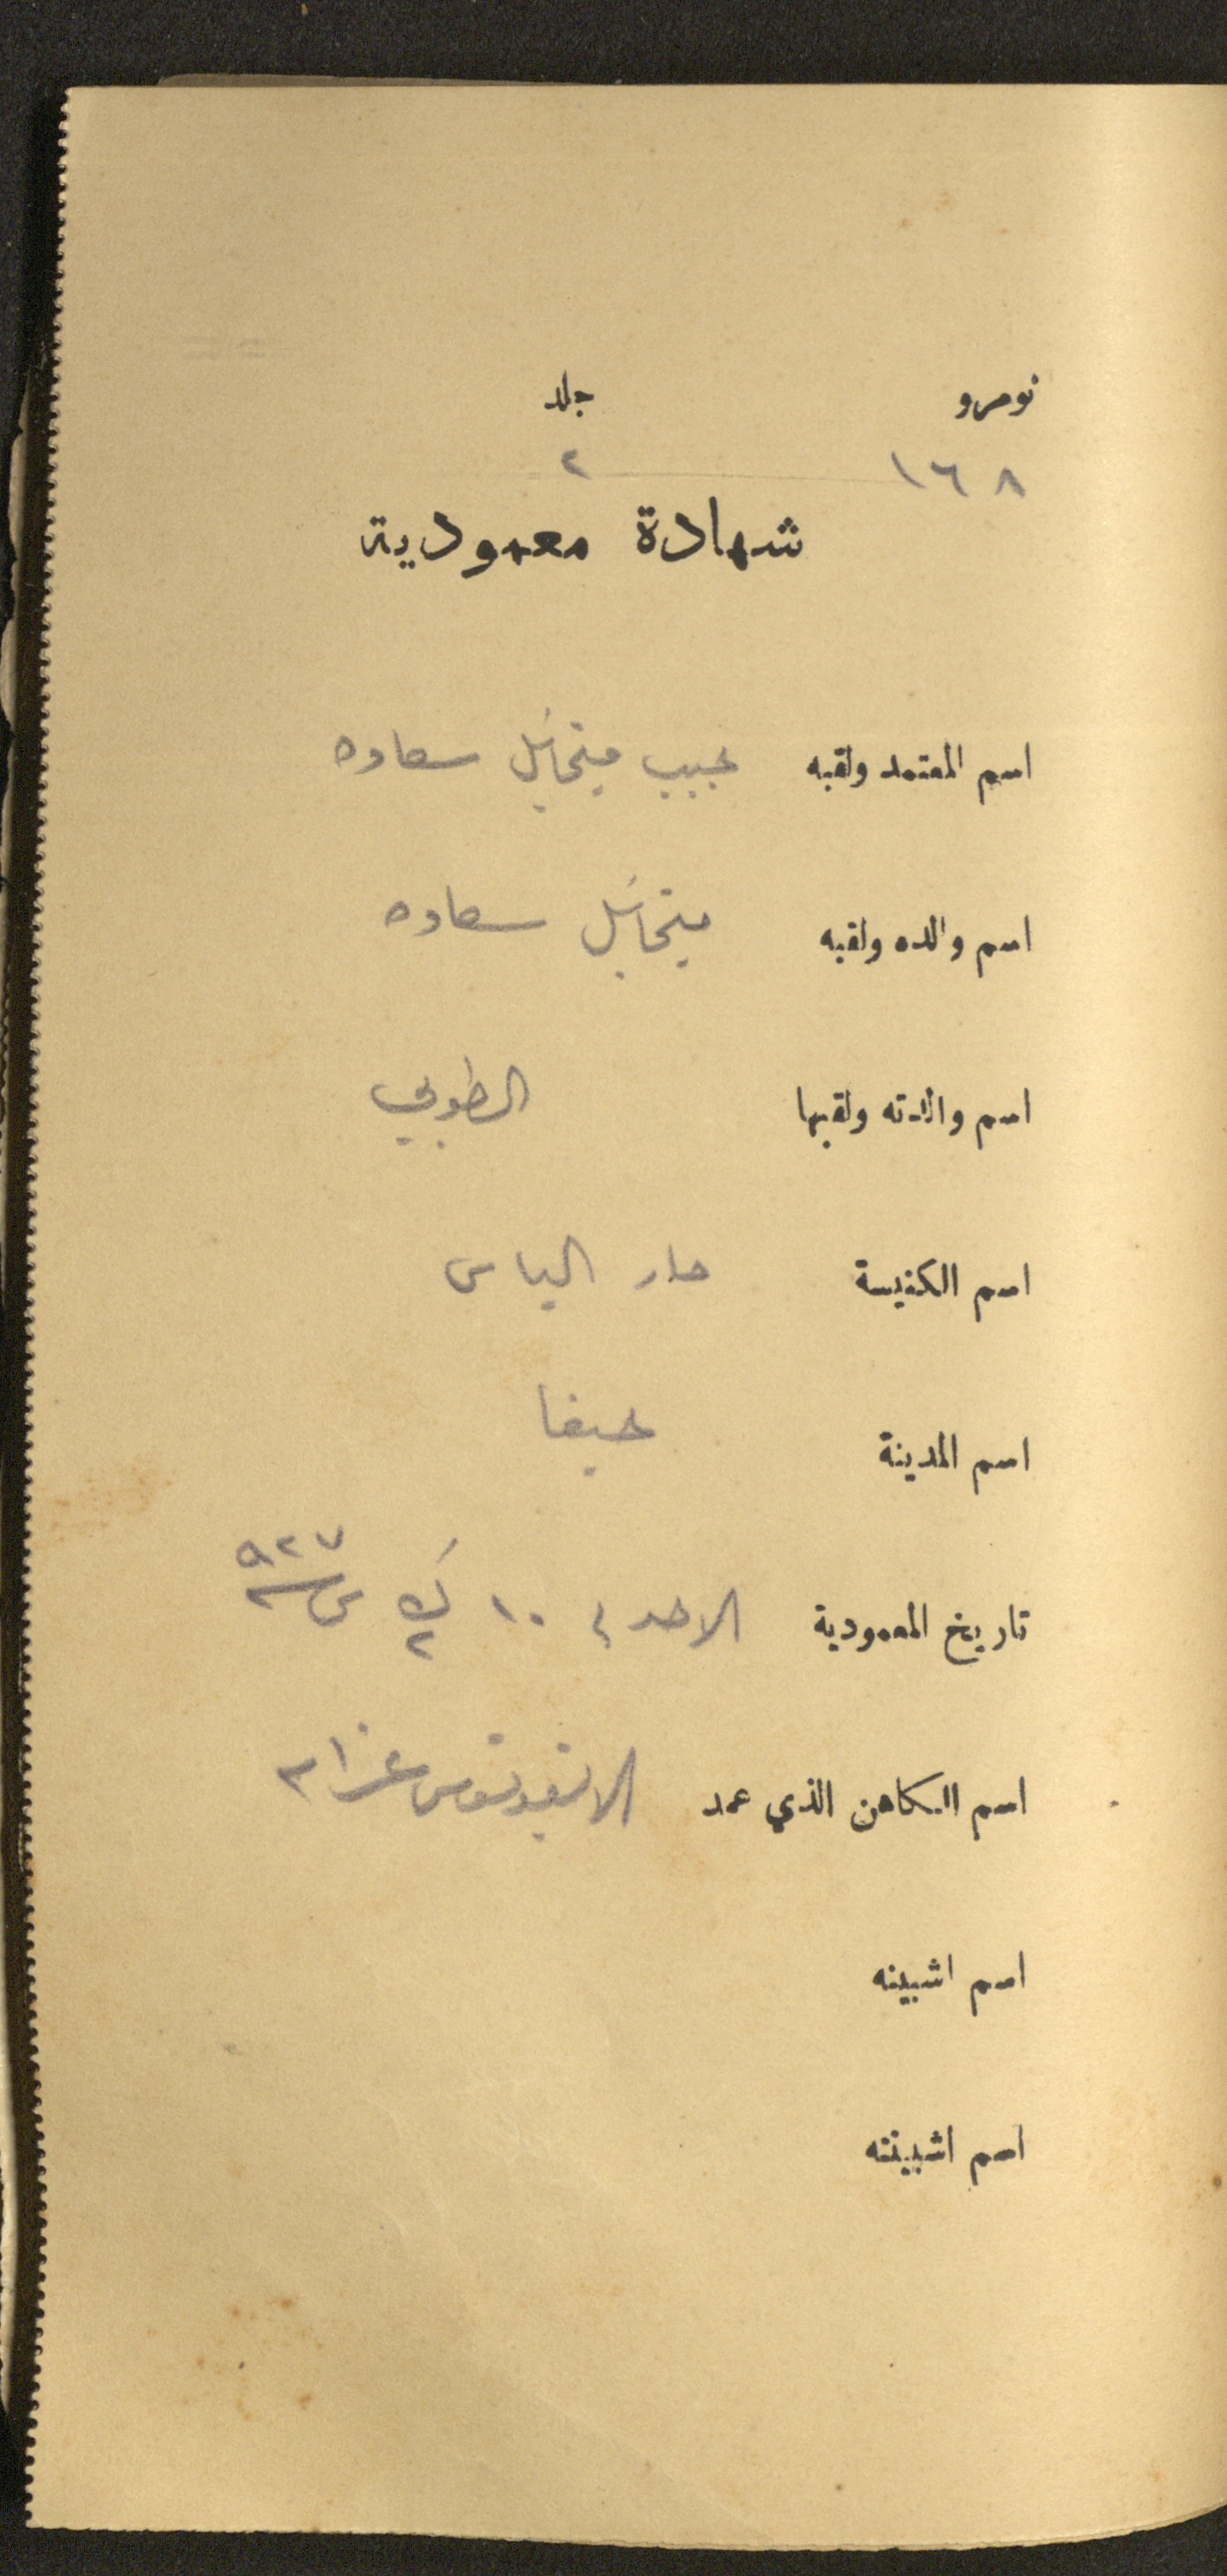 نومرو جلد
١٦٨ ٢
شهادة معمودية
اسم المعتمد ولقبه نجيب ميخائيل سعاده
اسم والده ولقبه ميخائيل سعاده
اسم والدته ولقبها الطوبي
اسم الكنيسة مار الياس
اسم المدينة حيفا
تاريخ المعمودية الاحد ١٠ ك٢ ٩٢٧
اسم الكاهن الذي عمد
اسم اشبينه
اسم اشبينته